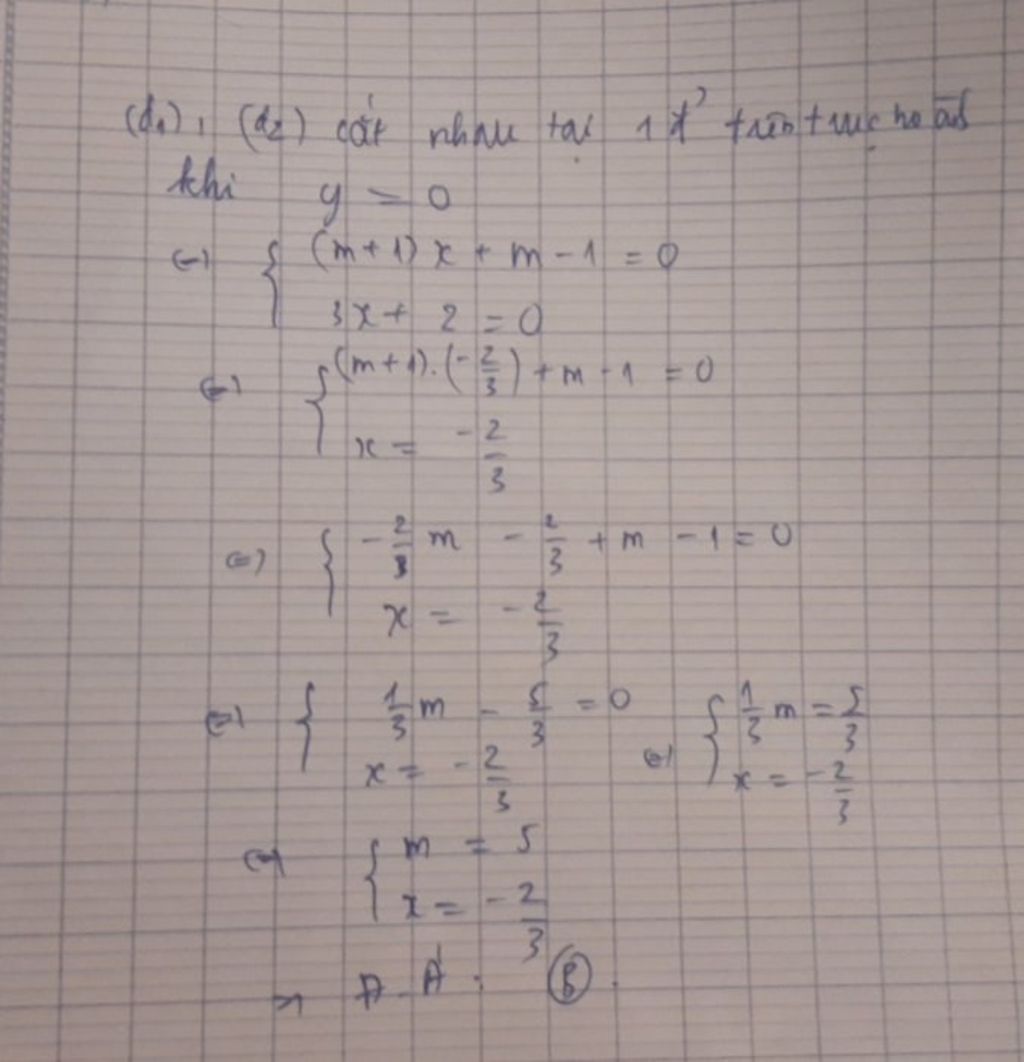 (d₁), (d₂) cắt nhau tại 1 đ' trên trục hoành
khi y = 0
(=) { (m+1)x + m - 1 = 0
3x + 2 = 0
(=) { (m+1).(-2/3) + m - 1 = 0
x = -2/3
(=) { -2/3 m - 2/3 + m - 1 = 0
x = -2/3
(=) { 1/3 m - 5/3 = 0 (=) { 1/3 m = 5/3
x = -2/3 x = -2/3
(=) { m = 5
x = -2/3
Đ.Á : (B).